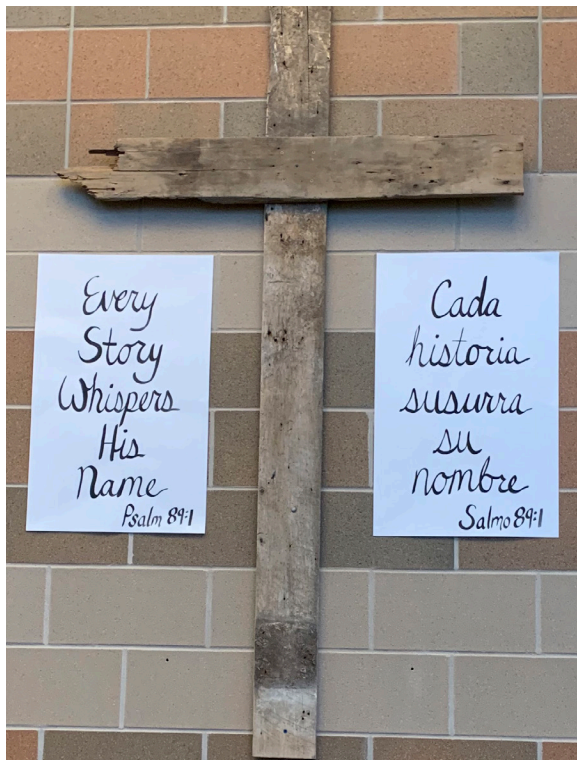 Every
Story
Whispers
His
Name
Psalm 89:1
Cada
historia
susurra
su
nombre
Salmo 89:1